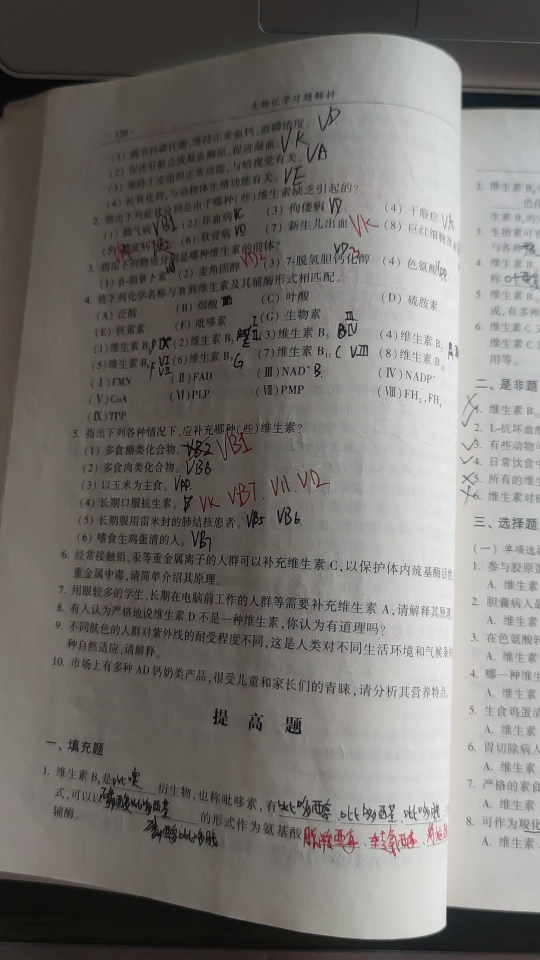 ·126· 生物化学习题解析
(1) 调节钙磷代谢,维持正常血钙、血磷浓度。 VD
(2) 促进肝脏合成凝血酶原,促进凝血。 VK
(3) 维持上皮组织正常功能,与暗视觉有关。 VA
(4) 抗氧化剂,与动物体生殖功能有关。 VE
2. 指出下列症状分别是由于哪种(些)维生素缺乏引起的?
(1) 脚气病 VB1 (2) 坏血病 VC (3) 佝偻病 VD (4) 干眼症 VA
(6) 软骨病 VD (7) 新生儿出血 VK (8) 巨红细胞
3. 指出下列物是分别是哪种维生素的前体?
(1) β-胡萝卜素 (2) 麦角固醇 VD2 (3) 7-脱氢胆钙化醇 VD3 (4) 色氨酸 VPP
4. 将下列化学名称与B族维生素及其辅酶形式相匹配。
(A) 泛酸 (B) 烟酸 (C) 叶酸 (D) 硫胺素
(E) 核黄素 (F) 吡哆素 (G) 生物素
(1) 维生素B₁ D IX (2) 维生素B₂ (3) 维生素B₃ (4) 维生素B₅
(5) 维生素B₆ F VI (6) 维生素B₇ G (7) 维生素B₁₁ C VIII (8) 维生素B₁₂
(Ⅰ) FMN (Ⅱ) FAD (Ⅲ) NAD⁺ (Ⅳ) NADP⁺
(Ⅴ) CoA (Ⅵ) PLP (Ⅶ) PMP (Ⅷ) FH₂,FH₄
(Ⅸ) TPP
5. 指出下列各种情况下,应补充哪种(些)维生素?
(1) 多食糖类化合物。 VB2 VB1
(2) 多食肉类化合物。 VB6
(3) 以玉米为主食。 VPP
(4) 长期口服抗生素。 VK VB7
(5) 长期服用雷米封的肺结核患者。 VB5 VB6
(6) 嗜食生鸡蛋清的人。 VB7
6. 经常接触铅、汞等重金属离子的人群可以补充维生素C,以保护体内巯基酶活性,
重金属中毒,请简单介绍其原理。
7. 用眼较多的学生、长期在电脑前工作的人群等需要补充维生素A,请解释其原理
8. 有人认为严格地说维生素D不是一种维生素,你认为有道理吗?
9. 不同肤色的人群对紫外线的耐受程度不同,这是人类对不同生活环境和气候条件
种自然适应,请解释。
10. 市场上有多种AD钙奶类产品,很受儿童和家长们的青睐,请分析其营养特点
提高题
一、填充题
1. 维生素B₆是吡啶衍生物,也称吡哆素,有吡哆醇、吡哆醛、吡哆胺
式,可以以磷酸吡哆醛 的形式作为氨基酸
辅酶。 磷酸吡哆胺
2. 维生素B
色化
生素B
3. 生物素可
与各种
4. 维生素B
称
5. 维生素B
成,有多种
6. 维生素C
维生素C
用等。
二、是非题
1. 维生素B₁₂
2. L-抗坏血
3. 有些动物可
4. 日常饮食中
5. 所有的维生
6. 维生素对
三、选择题
(一) 单项选
1. 参与胶原蛋
A. 维生素
2. 胆囊病人
A. 维生素
3. 在色氨酸
A. 维生素
4. 哪一种维生
A. 维生素
5. 生食鸡蛋清
A. 维生素
6. 胃切除病人
A. 维生素
7. 严格的素食
A. 维生素
8. 可作为羧化
A. 维生素